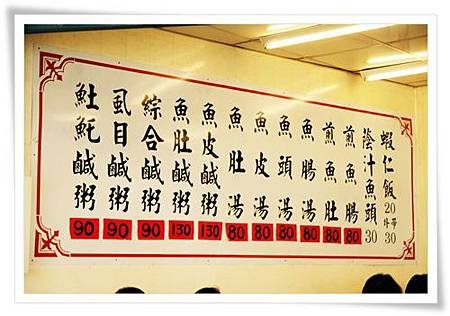 蝦仁飯 20 外帶 30
蔭汁魚頭 30
煎魚腸 80
煎魚肚 80
魚腸湯 80
魚頭湯 80
魚皮湯 80
魚肚湯 80
魚皮鹹粥 130
魚肚鹹粥 130
綜合鹹粥 90
虱目鹹粥 90
𩵚魠鹹粥 90